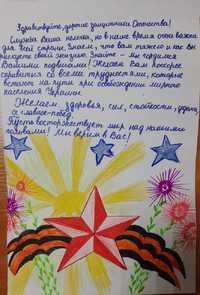 Здравствуйте, дорогие защитники Отечества!
Служба Ваша нелегка, но в наше время очень важна
для всей страны. Знаем, что вам тяжело и вы
рискуете своей жизнью. Знайте – мы гордимся
Вашими подвигами! Желаем Вам поскорее
справиться со всеми трудностями, которые
встают на пути при освобождении мирного
населения Украины.
Желаем, здоровья, сил, стойкости, удачи,
Пусть восторжествует мир над нашими
головами! Мы верим в Вас!